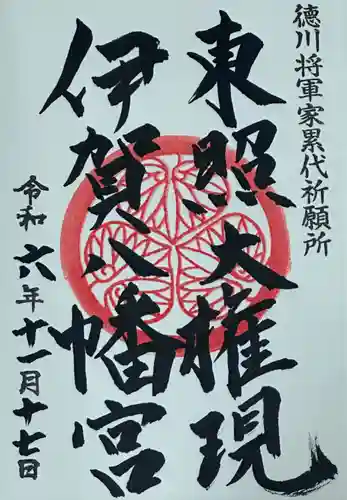 徳川将軍家累代祈願所
東照大権現
伊賀八幡宮
令和六年十一月十七日